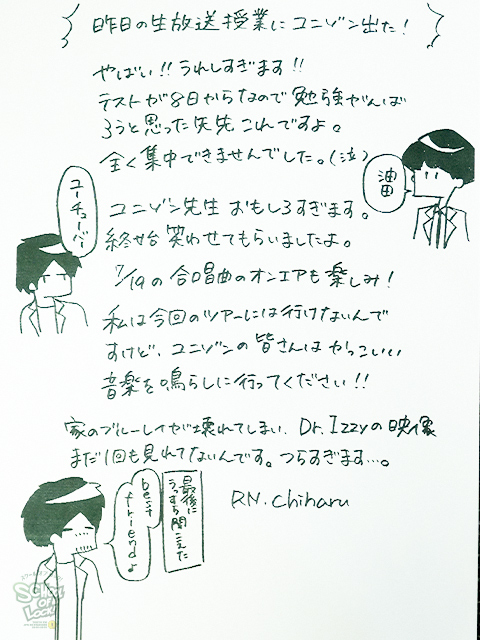 昨日の生放送授業にユニゾン出た!
やばい!!うれしすぎます!!
テストが8日からなので勉強がんば
ろうと思った矢先これですよ。
全く集中できませんでした。(泣)
油田
ユーチューバー
ユニゾン先生おもしろすぎます。
終始笑わせてもらいましたよ。
7/19の合唱曲のオンエアも楽しみ!
私は今回のツアーには行けないんで
すけど、ユニゾンの皆さんはかっこいい
音楽を鳴らしに行ってください!!
家のブルーレイが壊れてしまい、Dr.Izzyの映像
まだ1回も見れてないんです。つらすぎます…。
RN.Chiharu
最後に
うっすら聞こえた
best
friendよ
SCHOOL
OF
LOCK!